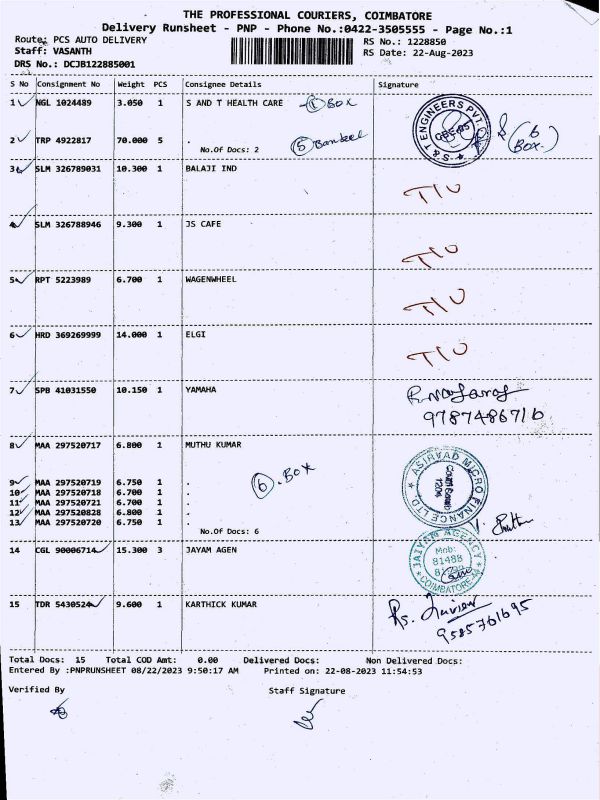 THE PROFESSIONAL COURIERS, COIMBATORE
Delivery Runsheet - PNP - Phone No.:0422-3505555 - Page No.:1
Route: PCS AUTO DELIVERY RS No.: 1228850
Staff: VASANTH RS Date: 22-Aug-2023
DRS No.: DCJB122885001
S No Consignment No Weight PCS Consignee Details Signature
1 NGL 1024489 3.050 1 S AND T HEALTH CARE 1 Box
S & T ENGINEERS PVT.
2 TRP 4922817 70.000 5 . 5
No.Of Docs: 2
(6 Box.)
3 SLM 326789031 10.300 1 BALAJI IND
T/U
4 SLM 326788946 9.300 1 JS CAFE
T/U
5 RPT 5223989 6.700 1 WAGENWHEEL
T/U
6 HRD 369269999 14.000 1 ELGI
T/U
7 SPB 41031550 10.150 1 YAMAHA
9787486716
8 MAA 297520717 6.800 1 MUTHU KUMAR
ASIRVAD MICRO FINANCE LTD.
6. Box
9 MAA 297520719 6.750 1 .
10 MAA 297520718 6.700 1 .
11 MAA 297520721 6.700 1 .
12 MAA 297520828 6.800 1 .
13 MAA 297520720 6.750 1 .
No.Of Docs: 6
14 CGL 90006714 15.300 3 JAYAM AGEN
JAIYAM AGENCY
Mob:
81488
COIMBATORE
15 TDR 5430524 9.600 1 KARTHICK KUMAR
9585761695
Total Docs: 15 Total COD Amt: 0.00 Delivered Docs: Non Delivered Docs:
Entered By :PNPRUNSHEET 08/22/2023 9:50:17 AM Printed on: 22-08-2023 11:54:53
Verified By Staff Signature